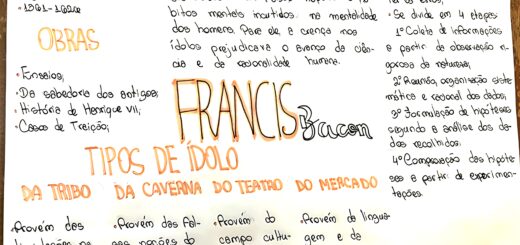 • 1561-1626
OBRAS
• Ensaios;
• Da sabedoria dos antigos;
• História de Henrique VII;
• Casos de Traição;
bitos mentais incutidos na mentalidade
dos homens. Para ele a crença nos
ídolos prejudicava o avanço da ciên-
cia e da racionalidade humana.
FRANCIS Bacon
• Se divide em 4 etapas:
1º Coleta de informações
a partir da observação ri-
gorosa da natureza;
2º Reunião, organização siste
mática e racional dos dados;
3º Formulação de hipóteses
segundo a análise dos da-
dos recolhidos.
4º Comprovação das hipóte
ses a partir de experimen-
tações.
TIPOS DE ÍDOLO
DA TRIBO DA CAVERNA DO TEATRO DO MERCADO
• Provém das
• Provém das fal-
noções do
• Provém do
campo cultu-
• Provém da lingua-
gem e da